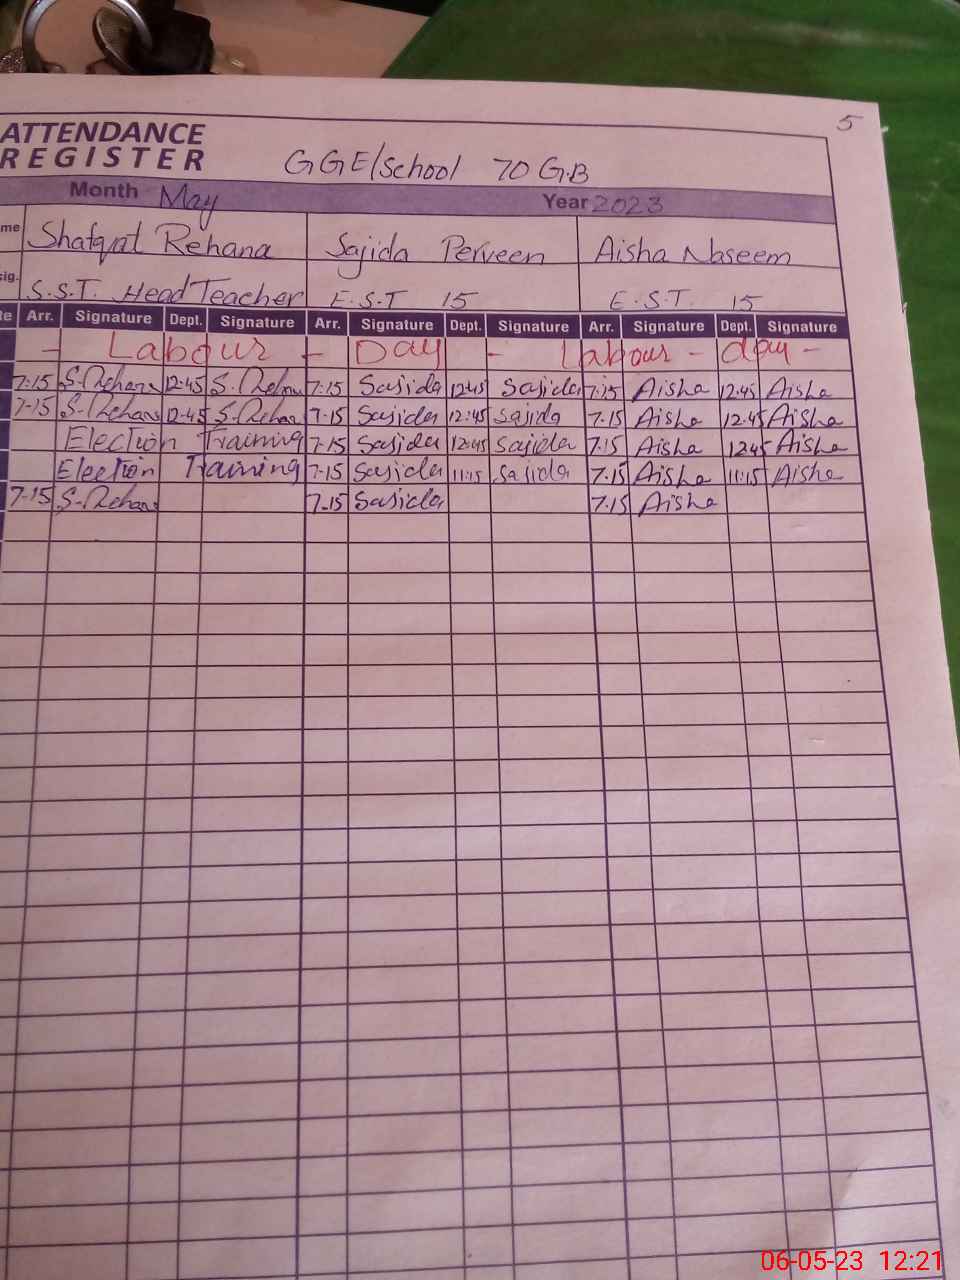 5
ATTENDANCE
REGISTER
GGE/School 70 G.B
Month May Year 2023
me Shafqat Rehana Sajida Perveen Aisha Naseem
sig. S.S.T. Head Teacher E.S.T 15 E.S.T. 15
te Arr. Signature Dept. Signature Arr. Signature Dept. Signature Arr. Signature Dept. Signature
- Labour - Day - Labour - day -
7:15 S-Rehana 12:45 S.Rehana 7:15 Sajida 12:45 Sajida 7:15 Aisha 12:45 Aisha
7-15 S-Rehana 12-45 S.Rehana 7-15 Sajida 12:45 Sajida 7.15 Aisha 12.45 Aisha
Election Training 7-15 Sajida 12:45 Sajida 7.15 Aisha 1245 Aisha
Election Training 7-15 Sajida 11:15 Sajida 7.15 Aisha 11:15 Aisha
7-15 S-Rehana 7-15 Sajida 7.15 Aisha
06-05-23 12:21